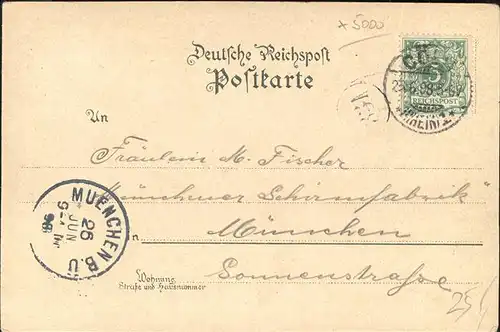 x 5000
Deutsche Reichspost
Postkarte
5
REICHSPOST
CÖLN
(RHEIN) 1
An
Fräulein M. Fischer
Münchner Schirmfabrik
in München
Sonnenstraße
Wohnung
Straße und Hausnummer
MUENCHEN B.U
26
JUN
98
25